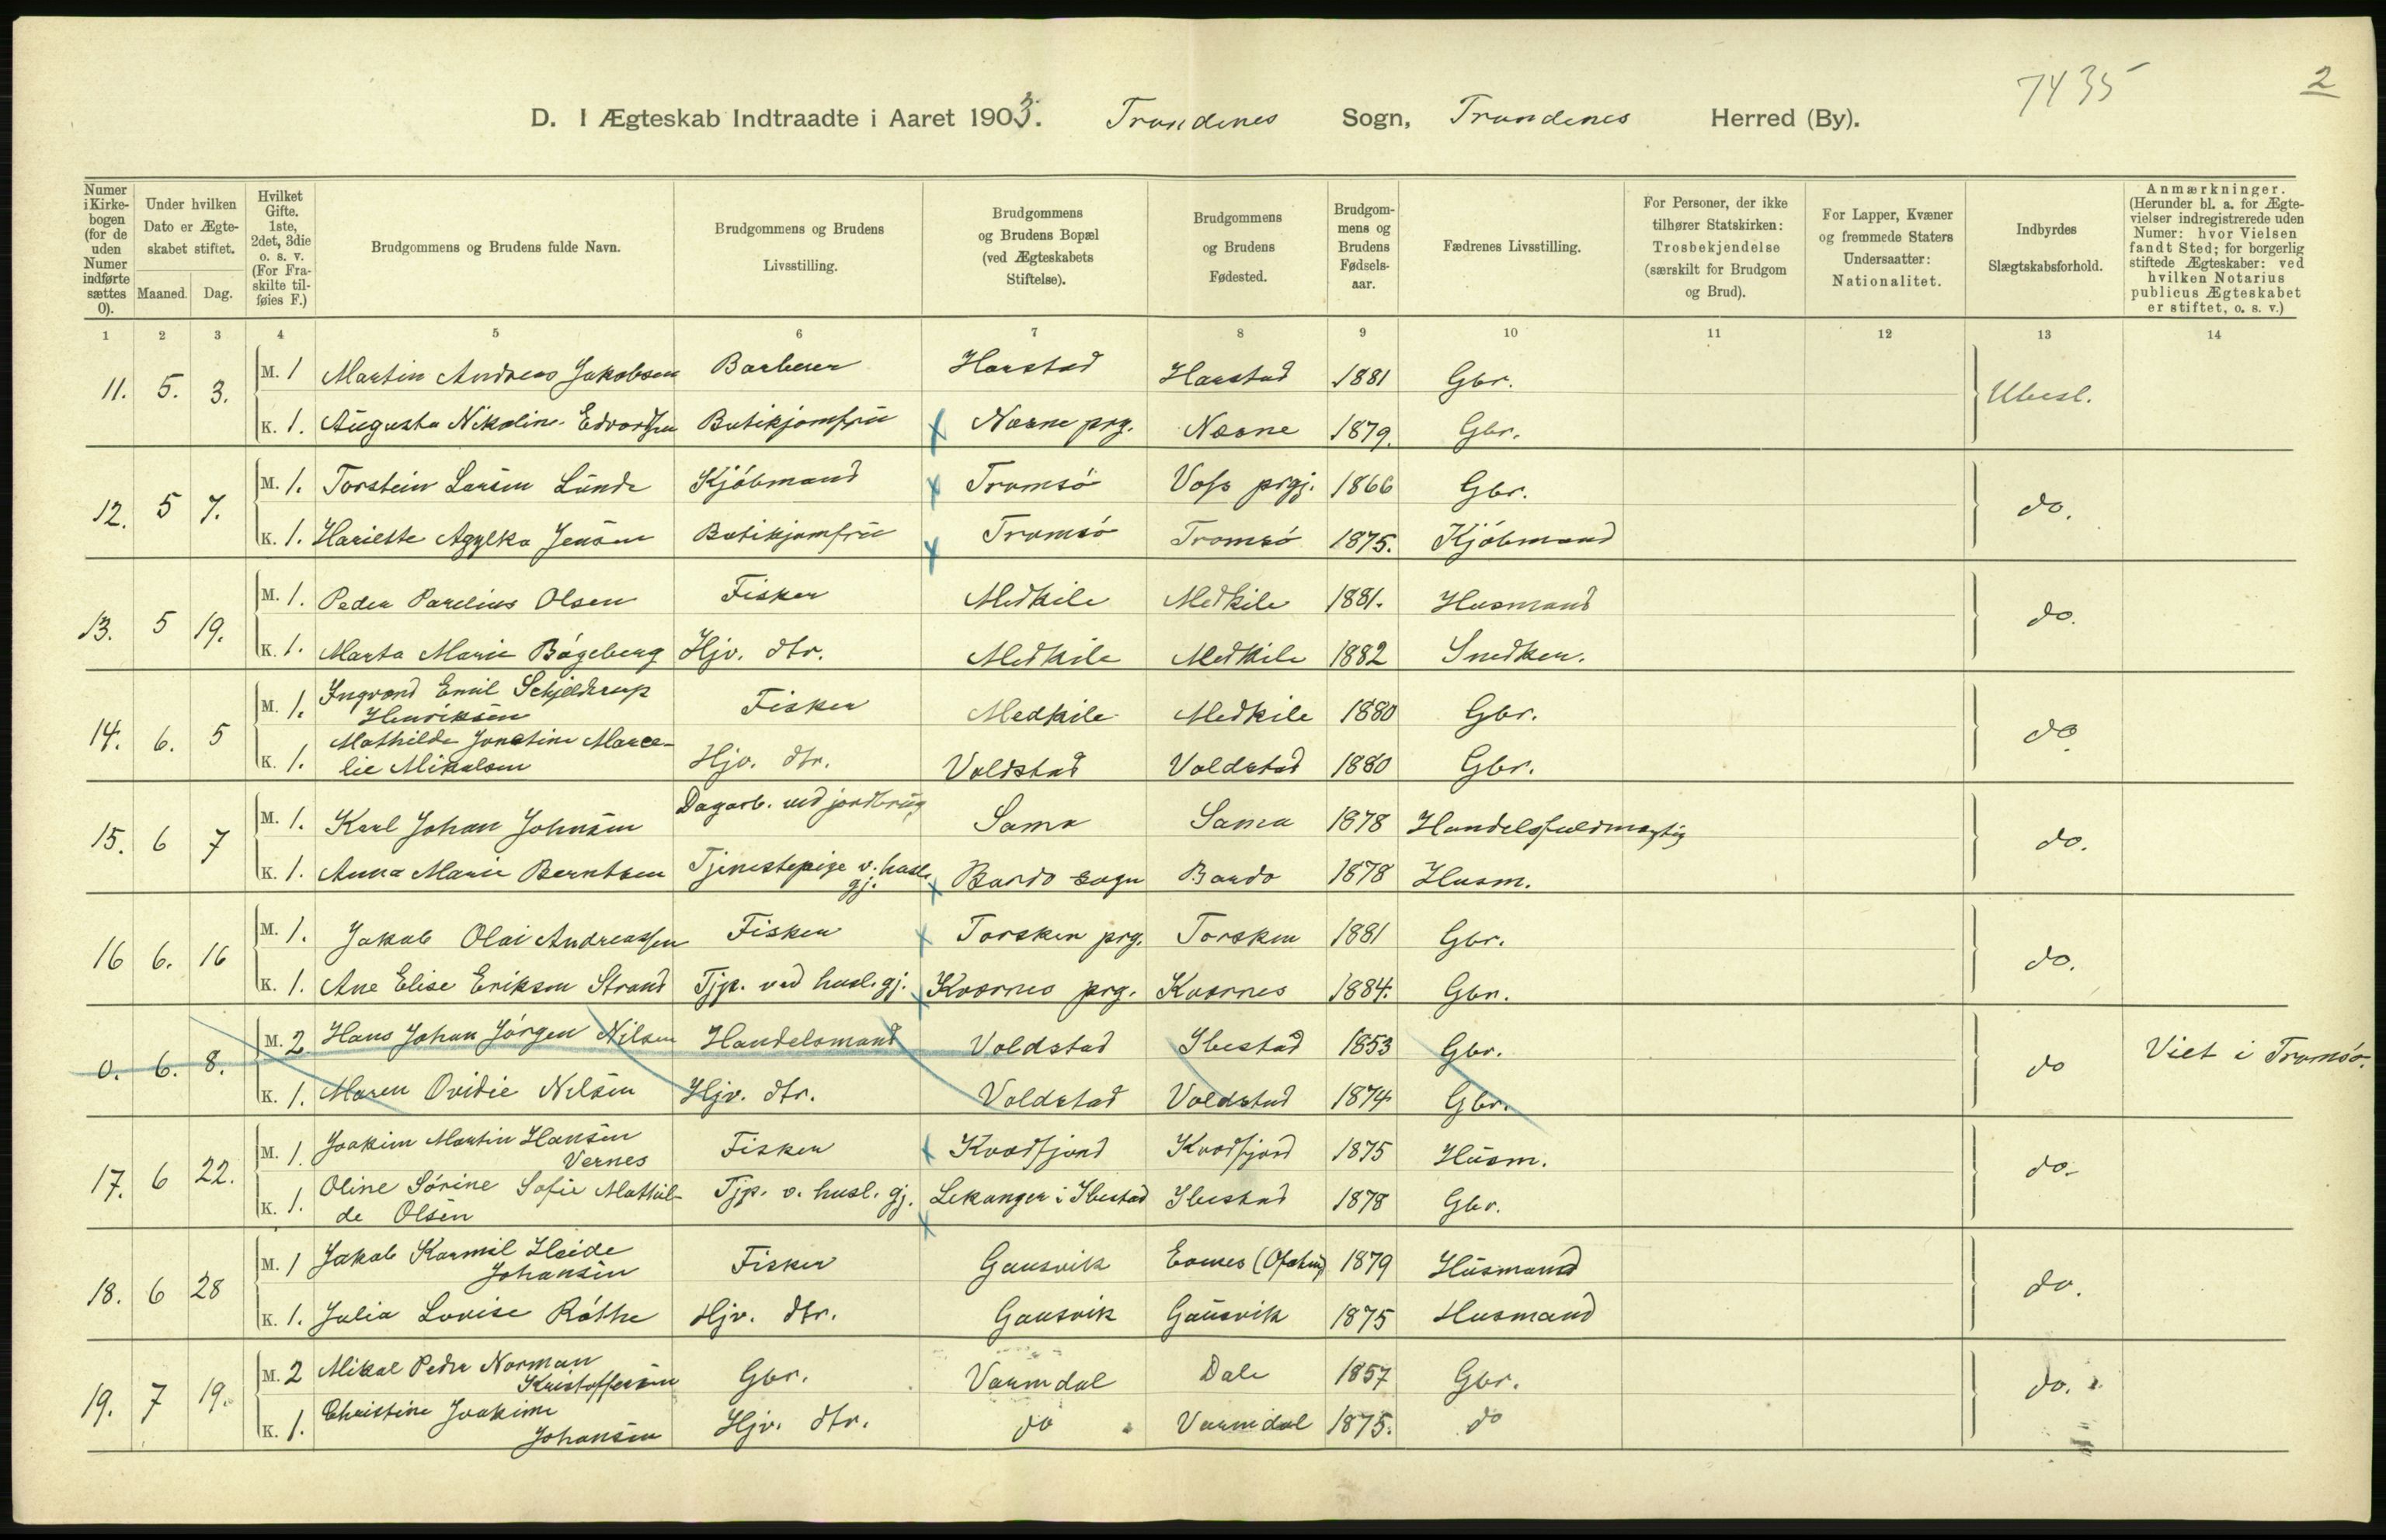 7435
2
D. I Ægteskab Indtraadte i Aaret 1903. Trondenes Sogn, Trondenes Herred (By).
Numer i Kirkebogen (for de uden Numer indførte sættes 0).
Under hvilken Dato er Ægteskabet stiftet.
Maaned. Dag.
Hvilket Gifte. 1ste, 2det, 3die o. s. v. (For Fraskilte tilføies F.)
Brudgommens og Brudens fulde Navn.
Brudgommens og Brudens Livsstilling.
Brudgommens og Brudens Bopæl (ved Ægteskabets Stiftelse).
Brudgommens og Brudens Fødested.
Brudgommens og Brudens Fødselsaar.
Fædrenes Livsstilling.
For Personer, der ikke tilhører Statskirken: Trosbekjendelse (særskilt for Brudgom og Brud).
For Lapper, Kvæner og fremmede Staters Undersaatter: Nationalitet.
Indbyrdes Slægtskabsforhold.
Anmærkninger. (Herunder bl. a. for Ægtevielser indregistrerede uden Numer: hvor Vielsen fandt Sted; for borgerlig stiftede Ægteskaber: ved hvilken Notarius publicus Ægteskabet er stiftet, o. s. v.)
1 2 3 4 5 6 7 8 9 10 11 12 13 14
11. 5. 3. M. 1 Martin Andreas Jakobsen Barberer Harstad Harstad 1881 Gbr. Ubesl.
K. 1. Augusta Nikoline Edvardsen Butikjomfru x Nesne prg. Nesne 1879. Gbr.
12. 5 7. M. 1. Torstein Larsen Lunde Kjøbmand x Tromsø Voss prgj. 1866 Gbr. do.
K. 1. Hariette Agylka Jensen Butikjomfru x Tromsø Tromsø 1875. Kjøbmand
13. 5 19. M. 1. Peder Parelius Olsen Fisker Medkile Medkile 1881. Husmand do.
K. 1. Marta Marie Bøgeberg Hjv. dtr. Medkile Medkile 1882 Snedker.
14. 6. 5 M. 1. Ingvard Emil Schjelderup
Henriksen Fisker Medkile Medkile 1880 Gbr. do
K. 1. Mathilde Jonetine Marce-
lie Mikalsen Hjv. dtr. Voldstad Voldstad 1880 Gbr.
15. 6 7 M. 1. Karl Johan Johnsen Dagarb. ved jordbrug Sama Sama 1878 Handelsfuldmægtig do.
K. 1. Anna Marie Berntsen Tjenestepige v. husl. gj. x Bardo sogn Bardo 1878 Husm.
16 6. 16 M. 1. Jakob Olai Andreassen Fisker x Torsken prg. Torsken 1881 Gbr. do.
K. 1. Ane Elise Eriksen Strand Tjp. ved husl. gj. x Kvernes prg. Kvernes 1884. Gbr.
0. 6. 8. M. 2 Hans Johan Jørgen Nilsen Handelsmand Voldstad Ibestad 1853 Gbr. do Viet i Tromsø.
K. 1. Maren Ovidie Nilsen Hjv. dtr. Voldstad Voldstad 1874 Gbr.
17. 6 22. M. 1. Joakim Martin Hansen
Vernes Fisker x Kvædfjord Kvædfjord 1875 Husm. do.
K. 1. Oline Sørine Sofie Mathil-
de Olsen Tjp. v. husl. gj. x Lekanger i Ibestad Ibestad 1878 Gbr.
18. 6 28 M. 1 Jakob Karmil Heide
Johansen Fisker Gausvik Evenes (Ofoten) 1879 Husmand do.
K. 1. Julia Lovise Røthe Hjv. dtr. Gausvik Gausvik 1875 Husmand
19. 7 19. M. 2 Mikal Peder Norman
Kristoffersen Gbr. Varmdal Dale 1857 Gbr. do.
K. 1. Christine Joakime
Johansen Hjv. dtr. do Varmdal 1875. do